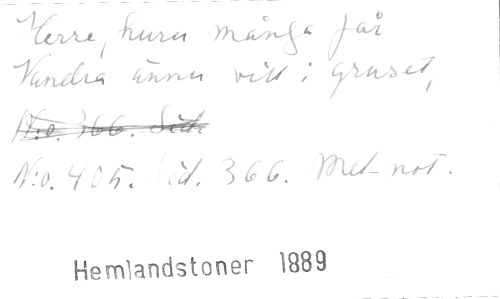 Herre, huru många får
Vandra ännu vill i gruset,
N:o. 366. Sid.
N:o. 405. Sid. 366. Med not.
Hemlandstoner 1889